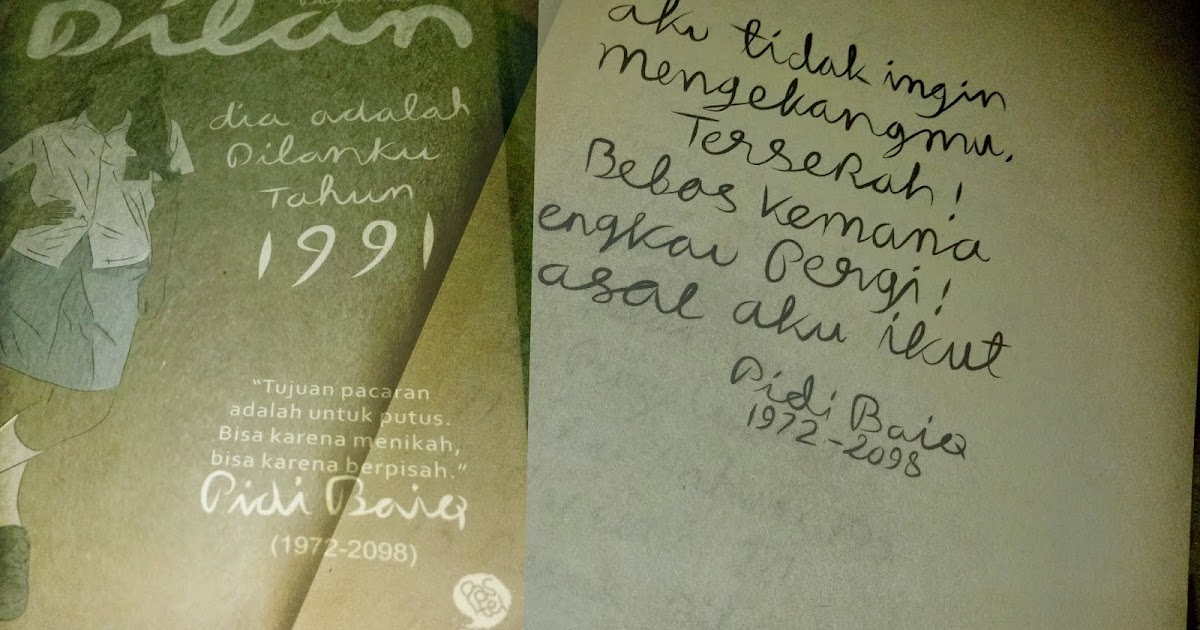 Dilan
dia adalah
Dilanku
Tahun
1991
"Tujuan pacaran
adalah untuk putus.
Bisa karena menikah,
bisa karena berpisah."
Pidi Baiq
(1972-2098)
aku tidak ingin
mengekangmu.
TerseRah!
Bebas kemana
engkau Pergi!
asal aku ikut
Pidi Baiq
1972-2098